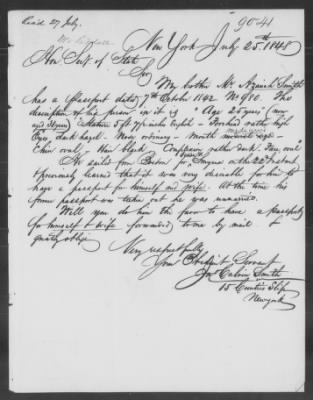 Recd 27 July.
9041
New York July 25th 1848
Hon Sec'y of State
Sir
My brother Mr Azariah Smith
has a Passport dated 7th October 1842 No 980. The
description of his person in it is "Age 25 years (now
Stature 5 ft 7½ inches English - Forehead rather high
Eyes dark hazel - Nose ordinary - Mouth medium
Chin oval - Hair black - Complexion rather dark. Face oval"
He sailed from Boston for Smyrna on the 22d instant
& previously learned that it was very desirable for him to
have a passport for himself and wife. At the time his
former passport was taken out he was unmarried.
Will you do him the favor to have a passport
for himself & wife forwarded to me by mail &
greatly oblige
Very respectfully
Your Obedient Servant
Jno Calvin Smith
15 Centre St
New York